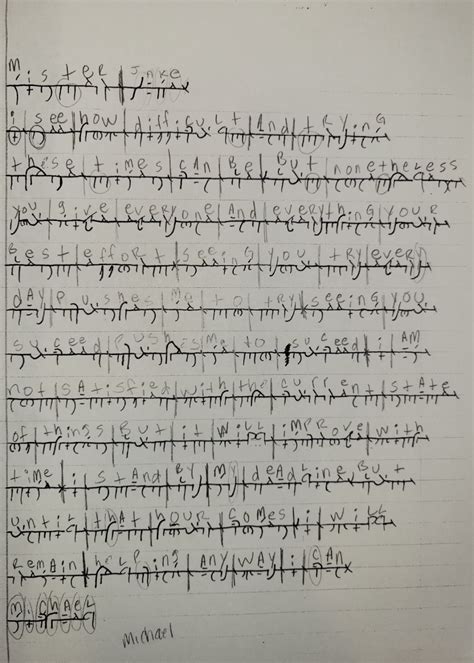 MistER Jake
i see how difficult And tRyinG
these times cAn Be But nonetheless
you give everyone And everythinG youR
Best effoRt seeinG you tRy every
dAy pushes Me to tRy seeing you
succeed push es Me to succeed i AM
not sAtisfied with the cuRRent stAte
of things But it wiLL iMPRove with
time i stAnd By My deAdLine But
untiL thAt houR comes i wiLL
ReMAin heLPing Any WAy i cAn
MichAeL
Michael